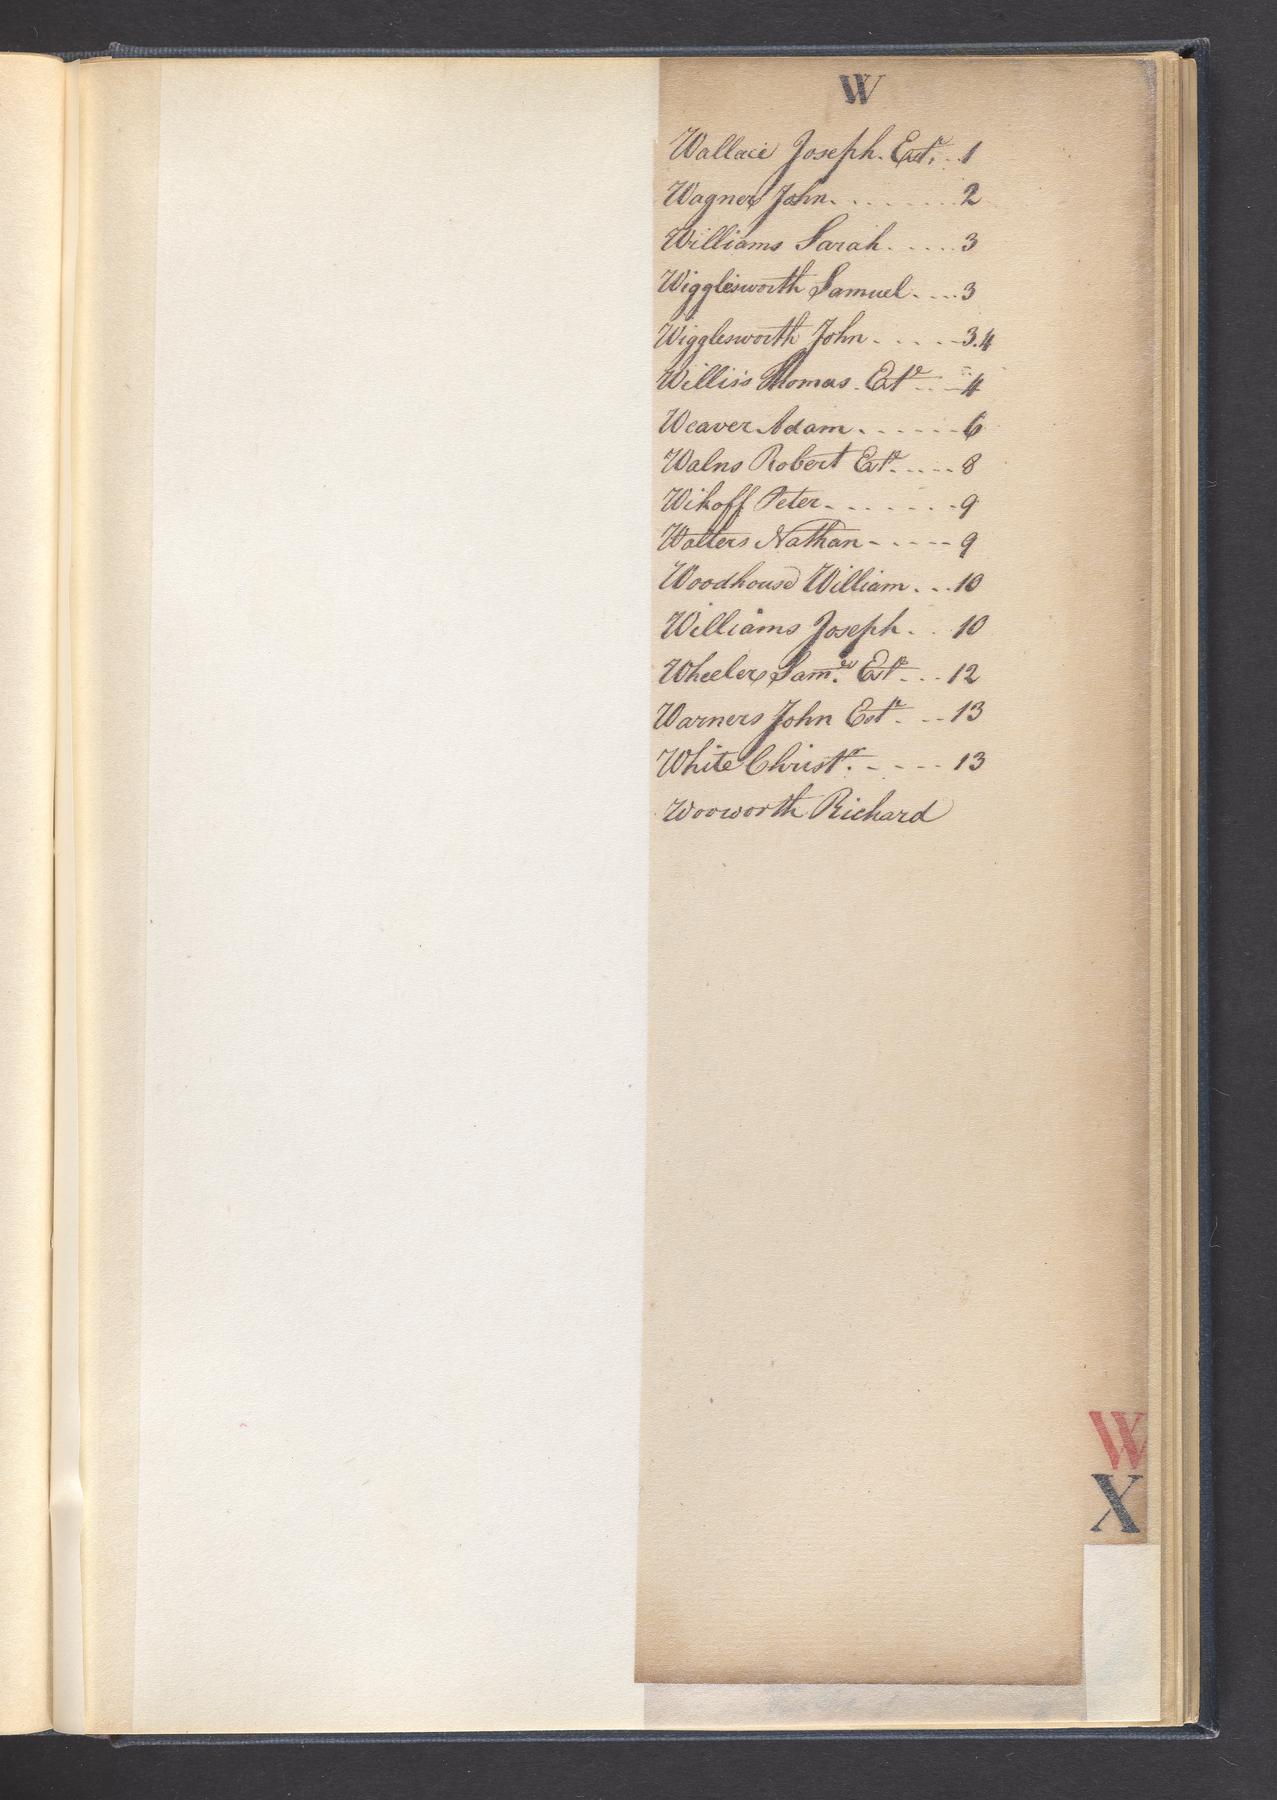 W
Wallace Joseph. Estr. . . 1
Wagner John. . . . . . . . 2
Williams Sarah. . . . . 3
Wigglesworth Samuel. . . . 3
Wigglesworth John . . . . . 3.4
Williss Thomas. Exte . . . 4
Weaver Adam . . . . . . 6
Walns Robert Estr. . . . . 8
Wikoff Peter. . . . . . . 9
Walters Nathan - - - - - 9
Woodhouse William. . . 10
Williams Joseph . . . 10
Wheelers Saml. Este. . . 12
Warners John Estr. . . . 13
White Christr. - - - - 13
Wooworth Richard
W
X